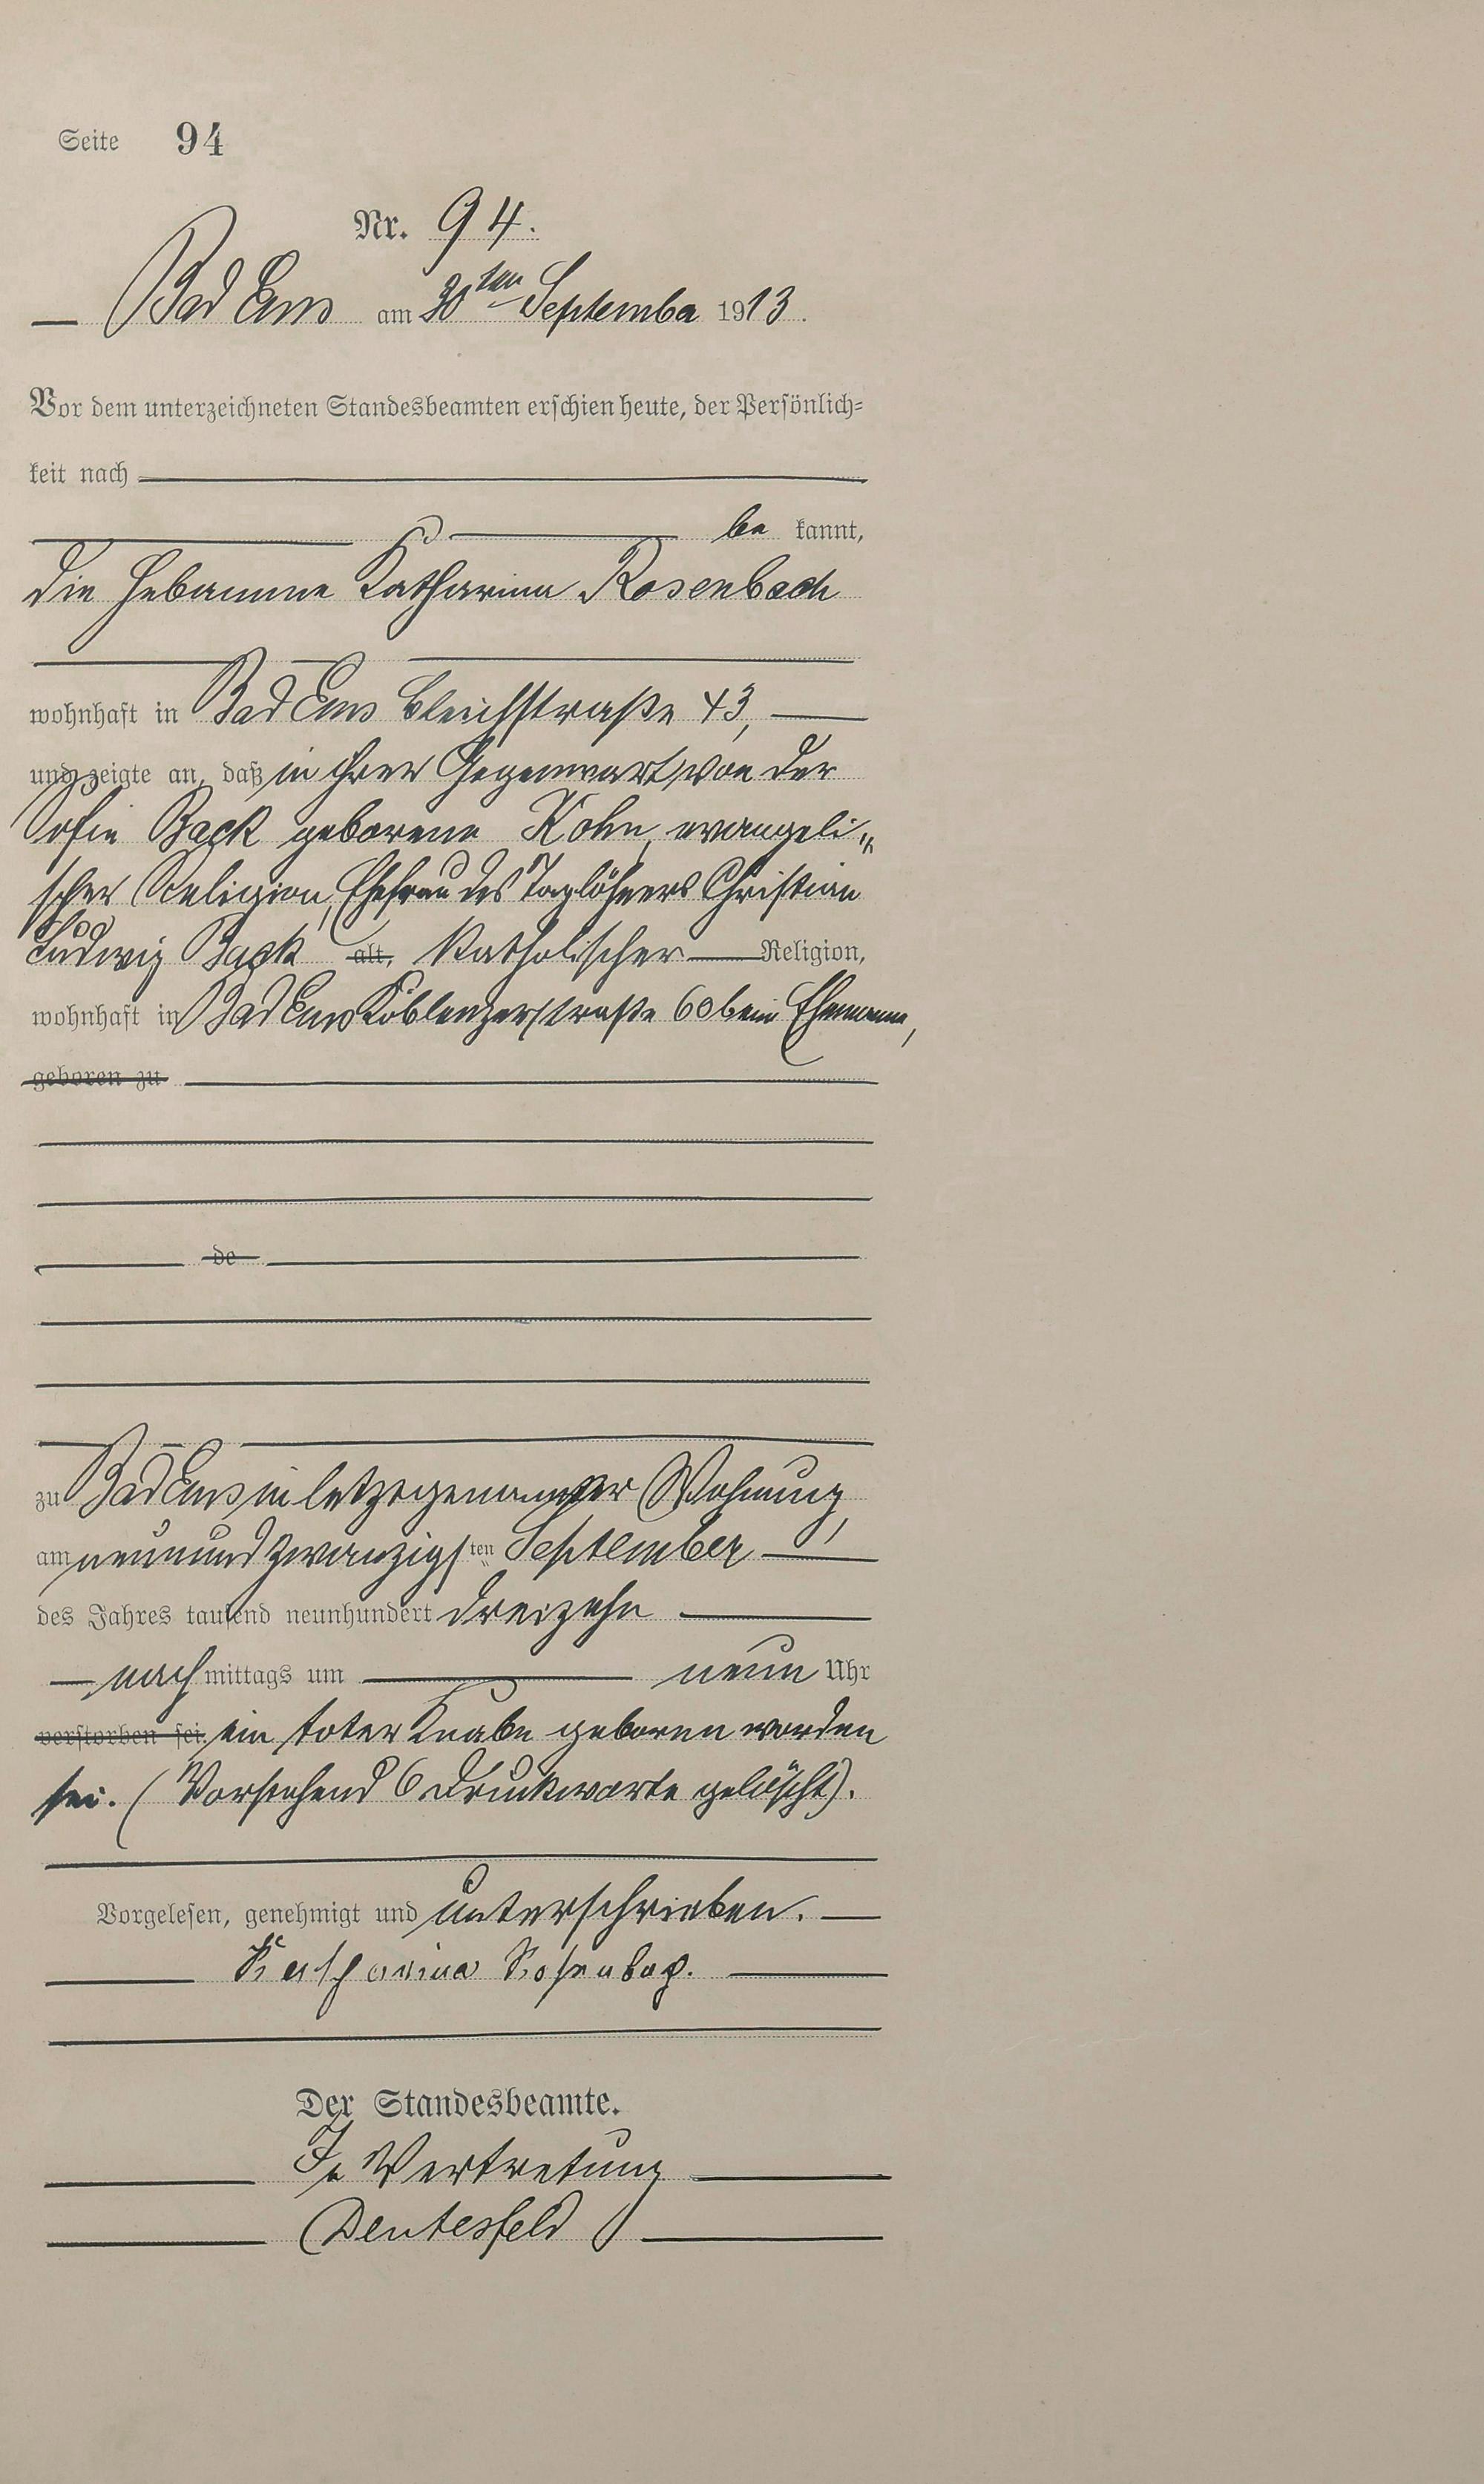 Seite 94
Nr. 94.
Bad Ems am 30ten September 1913.
Vor dem unterzeichneten Standesbeamten erschien heute, der Persönlich-
keit nach
be kannt,
die Hebamme Katharina Rosenbach
wohnhaft in Bad Ems Bleichstraße 43,
und zeigte an, daß in ihrer Gegenwart von der
Sofie Back geborene Kohn, evangeli-
scher Religion, Ehefrau des Taglöhners Christian
Ludwig Back alt, katholischer Religion,
wohnhaft in Bad Ems Koblenzerstraße 60 beim Ehemann,
geboren zu
de
zu Bad Ems in letztgenannter Wohnung,
am neunundzwanzigsten September
des Jahres tausend neunhundert dreizehn
nach mittags um neun Uhr
verstorben sei. ein toter Knabe geboren worden
sei. (Vorstehend 6 Druckworte gelöscht).
Vorgelesen, genehmigt und unterschrieben.
Katharina Rosenbach.
Der Standesbeamte.
In Vertretung